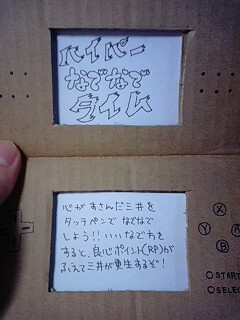 ハイパー
なでなで
タイム
心がすさんだ三井を
タッチペンでなでなで
しよう!!いいなでかを
すると、良心ポイント(RP)が
ふえて三井が更生するぞ!
X
Y
B
START
SELEC